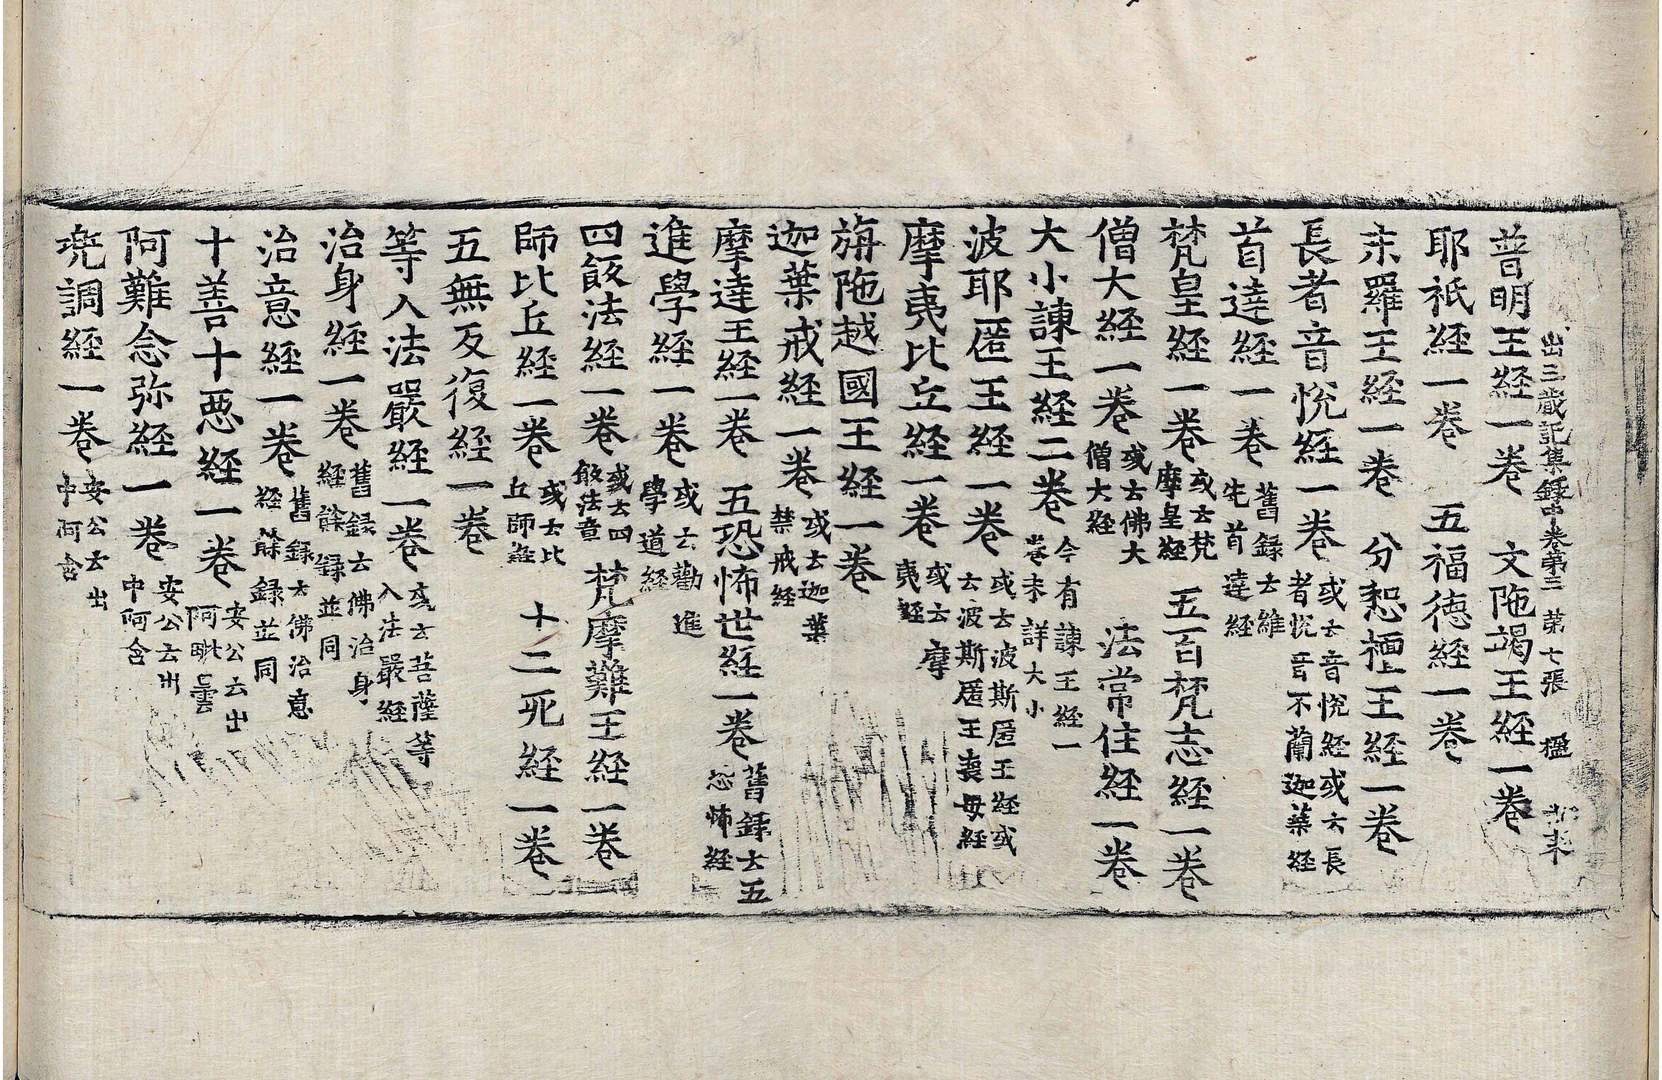 出三蔵記集録中卷第三 第七張 楹
普明王経一卷 文陁竭王経一卷
耶祇経一卷 五福徳経一卷
末羅王経一卷 分惒檀王経一卷
長者音恱経一卷 或云音恱経或云長者恱音不蘭迦葉経
首達経一卷 舊録云維先首達経
梵皇経一卷 或云梵摩皇経 五百梵志経一卷
僧大経一卷 或云佛大僧大経 法常住経一卷
大小諫王経二卷 今有諫王経一卷未詳大小
波耶匿王経一卷 或云波斯匿王経或云波斯匿王喪母経
摩夷比丘経一卷 或云摩夷経
旃陁越國王経一卷
迦葉戒経一卷 或云迦葉禁戒経
摩達王経一卷 五恐怖世経一卷 舊録云五恐怖経
進學経一卷 或云勸進學道経
四飯法経一卷 或云四飯法章 梵摩難王経一卷
師比丘経一卷 或云比丘師経 十二死経一卷
五無反復経一卷
等入法嚴経一卷 或云菩薩等入法嚴経
治身経一卷 舊録云佛治身経餘録並同
治意経一卷 舊録云佛治意経餘録並同
十善十悪経一卷 安公云出阿毗曇
阿難念弥経一卷 安公云出中阿含
兠調経一卷 安公云出中阿含